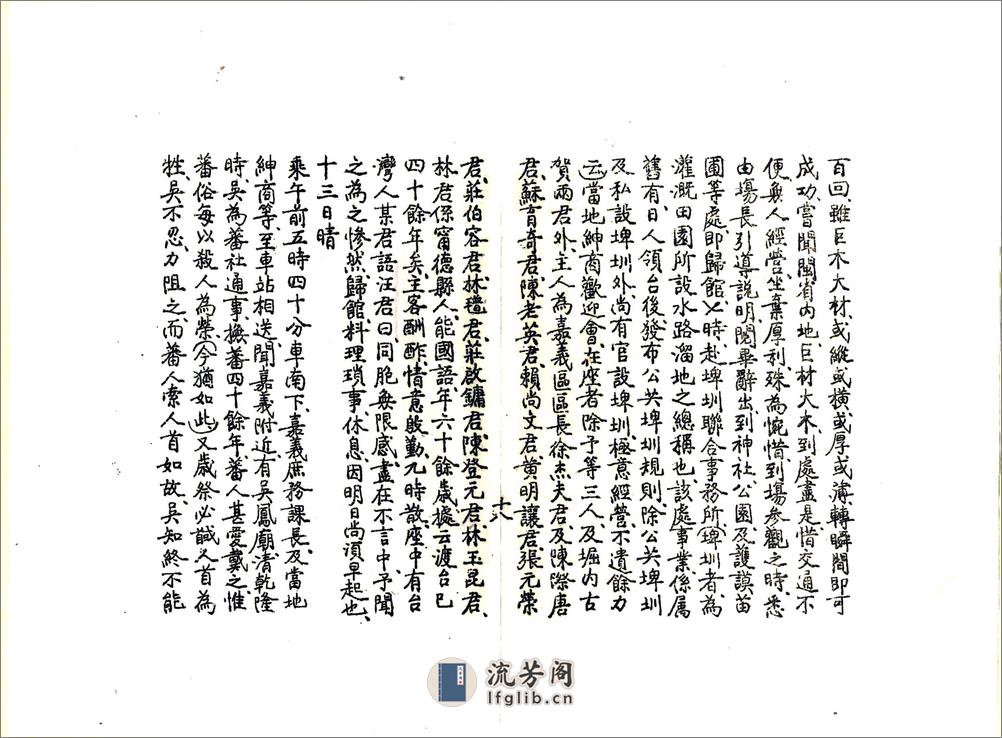 百回、雖巨木大材、或縱或橫、或厚或薄、轉瞬間即可
成功、嘗聞閩省內地巨材大木、到處盡是、惜交通不
便、無人經營、坐棄厚利、殊為惋惜、到場參觀之時、悉
由場長引導說明、閱畢辭出、到神社公園及護謨苗
圃等處、即歸館、乂時赴埤圳聯合事務所、(埤圳者、為
灌溉田園所設水路溜地之總稱也、該處事業係屬
舊有、日人領台後、發布公共埤圳規則、除公共埤圳
及私設埤圳外、尚有官設埤圳、極意經營、不遺餘力
云)當地紳商歡迎會、在座者除予等三人及堀內古
賀兩君外、主人為嘉義區區長徐杰夫君及陳際唐
君、蘇育奇君、陳老英君、賴尚文君、黃明讓君、張元榮
十八
君、莊伯容君、林穗君、莊啟鏞君、陳登元君、林玉崑君、
林君係甯德縣人、能國語、年六十餘歲、據云渡台已
四十餘年矣、主客酬酢、情意殷勤、九時散、座中有台
灣人某君語汪君曰、同胞無限感、盡在不言中、予聞
之為之慘然、歸館料理瑣事、休息、因明日尚須早起也、
十三日晴
乘午前五時四十分車南下、嘉義庶務課長及當地
紳商等、至車站相送、聞嘉義附近有吳鳳廟、清乾隆
時、吳為蕃社通事、撫蕃四十餘年、蕃人甚愛戴之、惟
蕃俗每以殺人為榮、(今猶如此)又歲祭必馘人首為
牲、吳不忍、力阻之、而蕃人索人首如故、吳知終不能
流芳阁
lfglib.cn